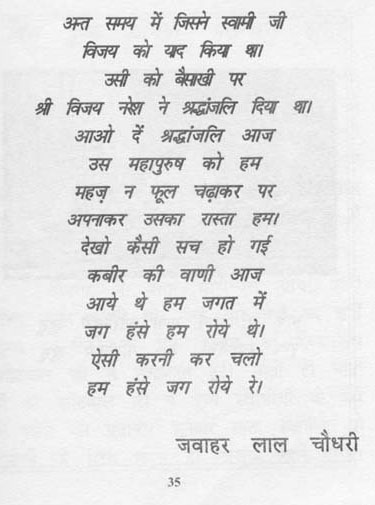 अन्त समय में जिसने स्वामी जी
विजय को याद किया था।
उसी को बैसाखी पर
श्री विजय नरेश ने श्रद्धांजलि दिया था।
आओ दें श्रद्धांजलि आज
उस महापुरुष को हम
महज़ न फूल चढ़ाकर पर
अपनाकर उसका रास्ता हम।
देखो कैसी सच हो गई
कबीर की वाणी आज
आये थे हम जगत में
जग हंसे हम रोये थे।
ऐसी करनी कर चलो
हम हंसे जग रोये रे।
जवाहर लाल चौधरी
35